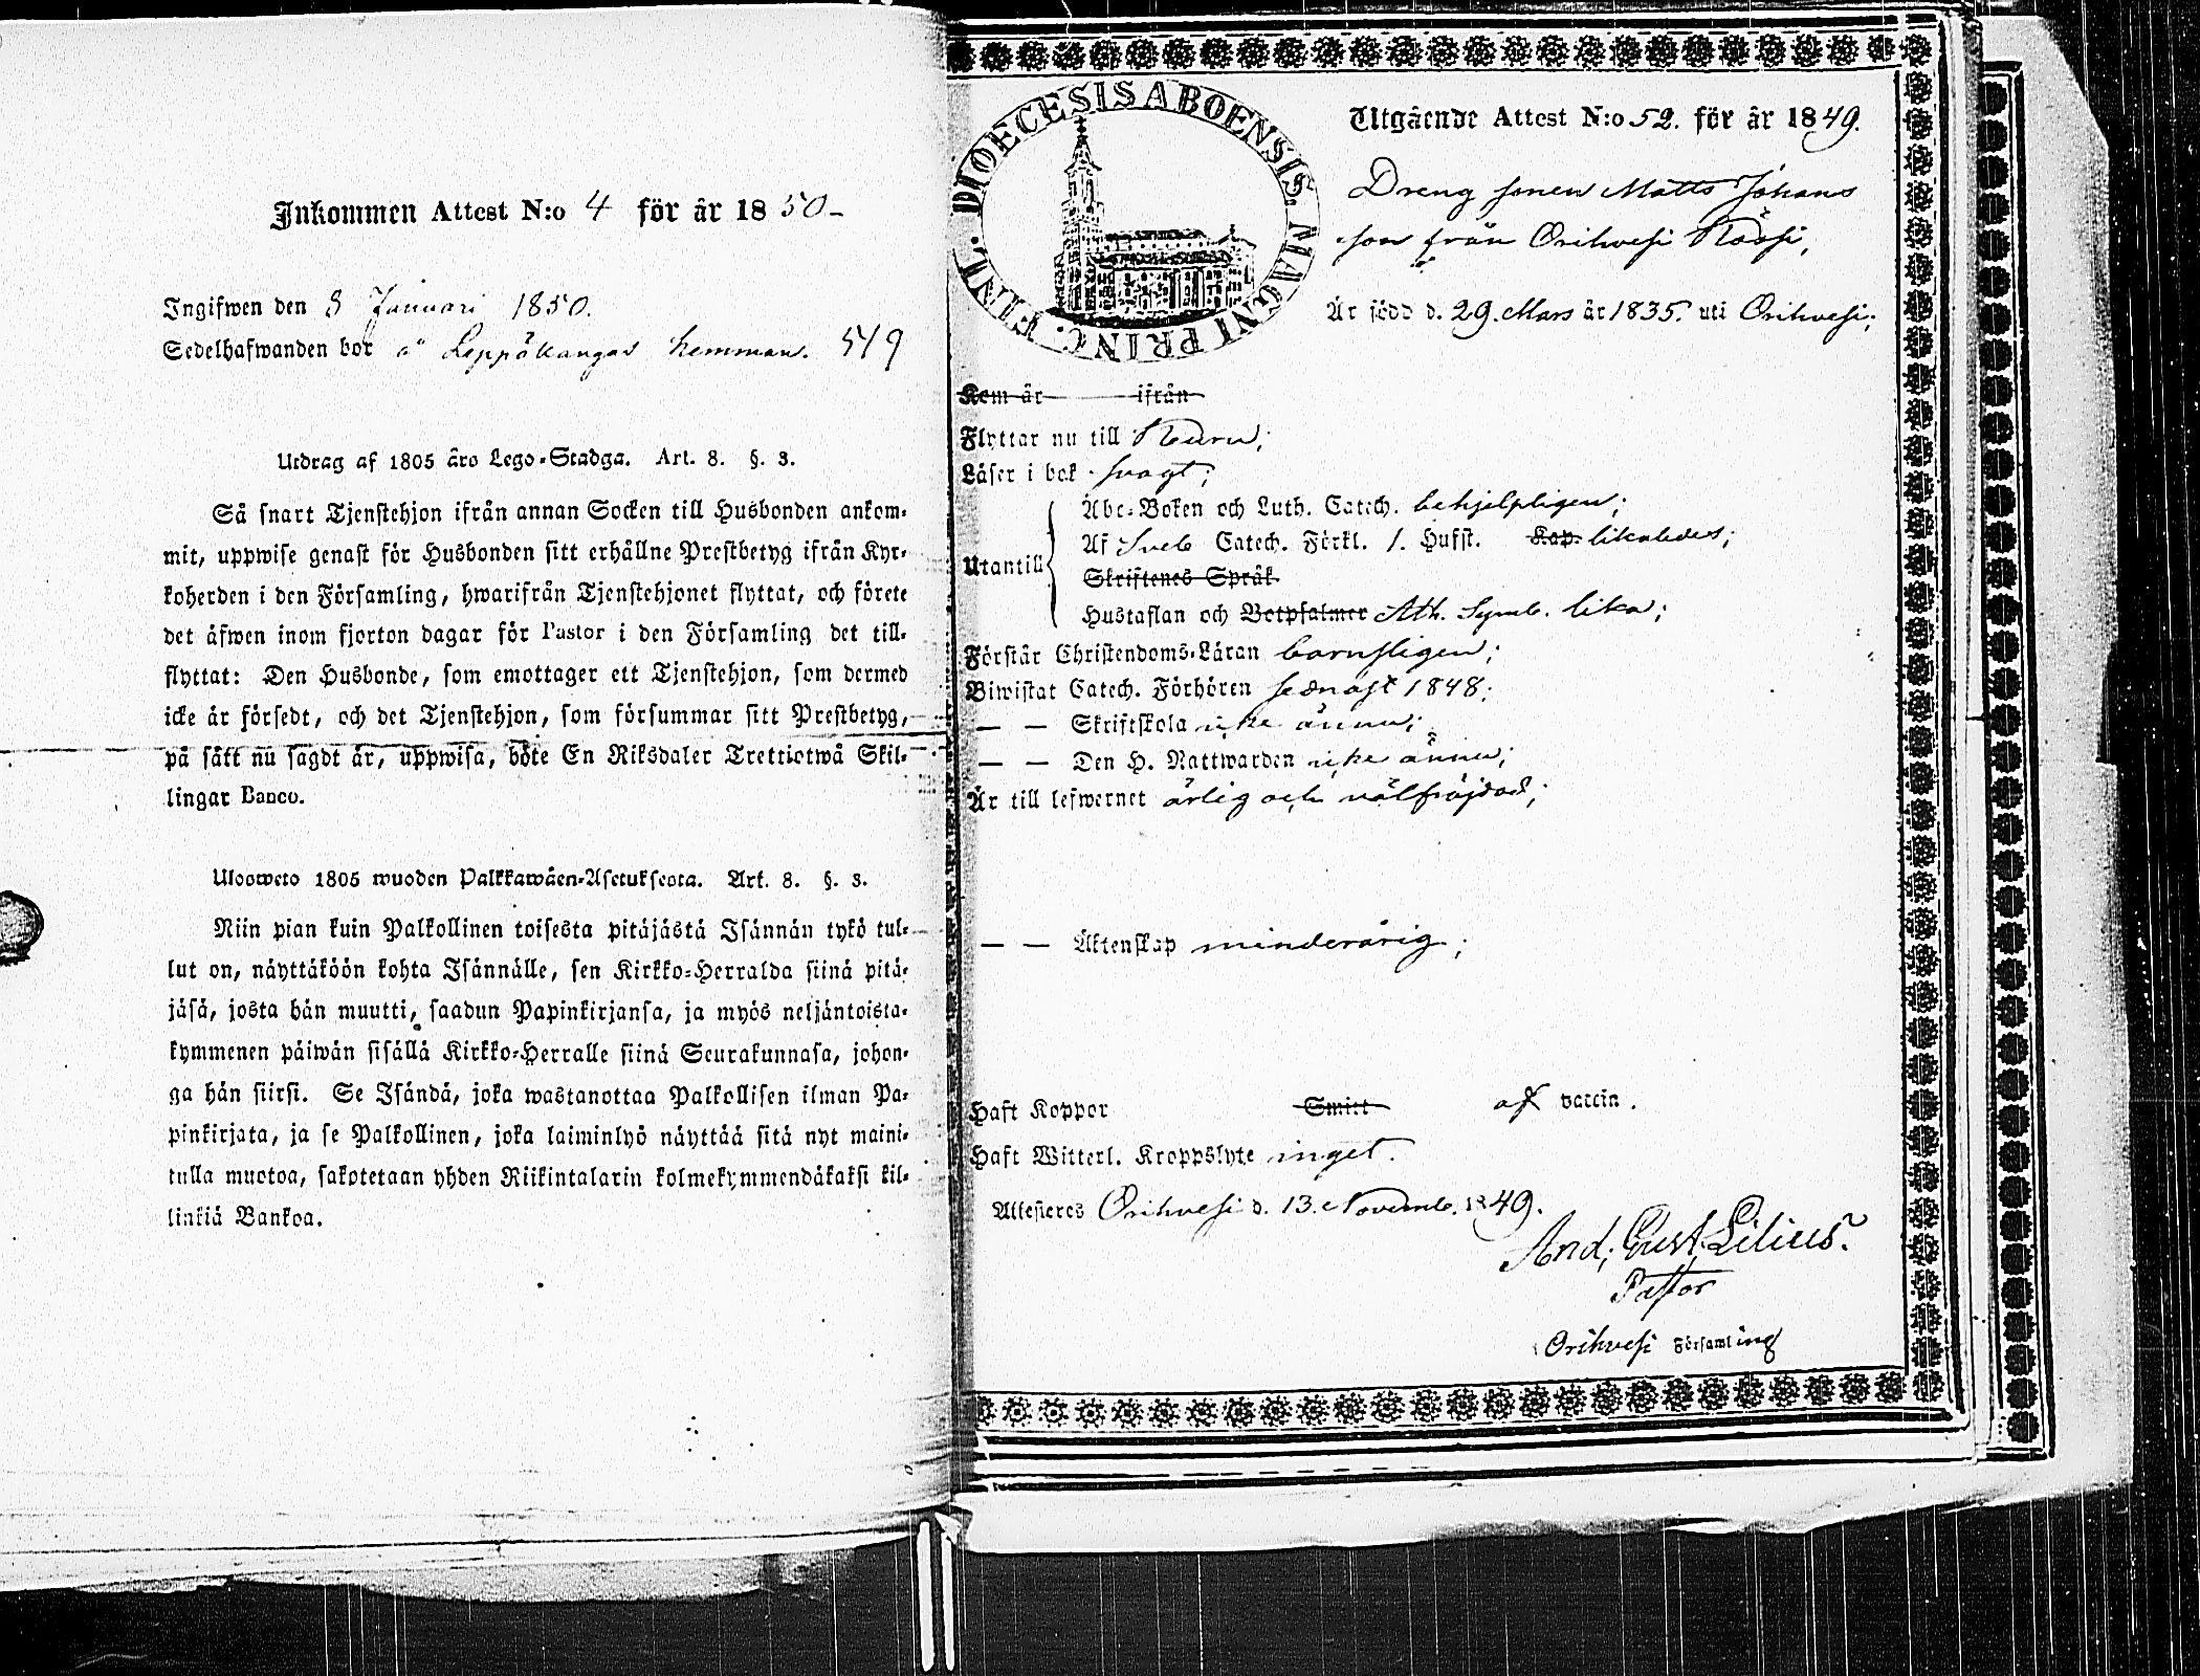 Inkommen Attest N:o 4 för år 1850-
Ingifwen den 8 Januari 1850.
Sedelhafwanden bor å Leppäkangas hemman. 549
Utdrag af 1805 års Lego-Stadga. Art. 8. §. 3.
Så snart Tjenstehjon ifrån annan Socken till Husbonden ankom-
mit, uppwise genast för Husbonden sitt erhållne Prestbetyg ifrån Kyr-
koherden i den Församling, hwarifrån Tjenstehjonet flyttat, och förete
det äfwen inom fjorton dagar för Pastor i den Församling det till-
flyttat: Den Husbonde, som emottager ett Tjenstehjon, som dermed
icke är försedt, och det Tjenstehjon, som försummar sitt Prestbetyg,
på sätt nu sagdt är, uppwisa, böte En Riksdaler Trettiotwå Skil-
lingar Banco.
Ulosweto 1805 wuoden Palkkawäen-Asetuksesta. Art. 8. §. 3.
Niin pian kuin Palkollinen toisesta pitäjästä Isännän tykö tul-
lut on, näyttäköön kohta Isännälle, sen Kirkko-Herralda siinä pitä-
jäsä, josta hän muutti, saadun Papinkirjansa, ja myös neljäntoista-
kymmenen päiwän sisällä Kirkko-Herralle siinä Seurakunnasa, johon-
ga hän siirsi. Se Isändä, joka wastanottaa Palkollisen ilman Pa-
pinkirjata, ja se Palkollinen, joka laiminlyö näyttää sitä nyt maini-
tulla muotoa, sakotetaan yhden Riikintalarin kolmekymmendäkaksi kil-
linkiä Bankoa.
DIOECESIS ABOENSIS. MAGNI PRINC. FINL.
Utgående Attest N:o 52. för år 1849.
Dreng sonen Matts Johans
son från Orihvesi Rössi,
Är född d. 29. Mars år 1835. uti Orihvesi;
Kom år ifrån
Flyttar nu till Ruru;
Läser i bok svagt;
Utantill
Abc-Boken och Luth. Catech. behjelpligen;
Af Sveb Catech. Förkl. 1. Hufst. Kap. likaledes;
Skriftenes Språk
Hustaflan och Botpsalmer Ath. Symb. lika;
Förstår Christendoms-Läran barnsligen;
Biwistat Catech. Förhören sednast 1848;
— — Skriftskola icke ännu;
— — Den H. Nattwarden icke ännu;
Är till lefwernet ärlig och välfräjdad;
— — Äktenskap minderårig;
Haft Koppor Smitt af vaccin.
Haft Witterl. Kroppslyte inget.
Attesteres Orihvesi d. 13. Novemb. 1849.
And. Gust. Lilius.
Pastor
Orihvesi Församling